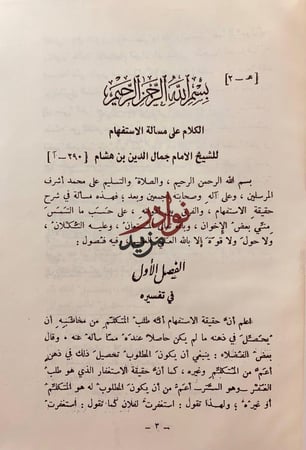 [ هـ ـ ٢ ]
بسم الله الرحمن الرحيم
الكلام على مسألة الاستفهام
للشيخ الامام جمال الدين بن هشام [ ٢٩٠ ـ آ ]
بسم الله الرحمن الرحيم ، والصلاة والتسليم على محمد أشرف
المرسلين ، وعلى آله وصحابته أجمعين وبعد ؛ فهذه مسألة في شرح
حقيقة الاستفهام ، والفرق على حسب ما التمس
مني بعض الإخوان ، وعليه التكلان ،
ولا حول ولا قوة إلا بالله العـ فيه فصول :
نوادر
مزيد
الفصل الأول
في تفسيره
اعلم أن حقيقة الاستفهام أنه طلب المتكلم من مخاطبه أن
يحصل في ذهنه ما لم يكن حاصلا عنده مما سأله عنه ، وقال
بعض الفضلاء : ينبغي أن يكون المطلوب تحصيل ذلك في ذهن
أعم من المتكلم وغيره ، كما أن حقيقة الاستغفار الذي هو طلب
الغفر ـ وهو الستر ـ أعم من أن يكون المطلوب له هو المتكلم
أو غيره ؛ ولهذا تقول : استغفرت لفلان كما تقول : استغفرت
ـ ٣ ـ